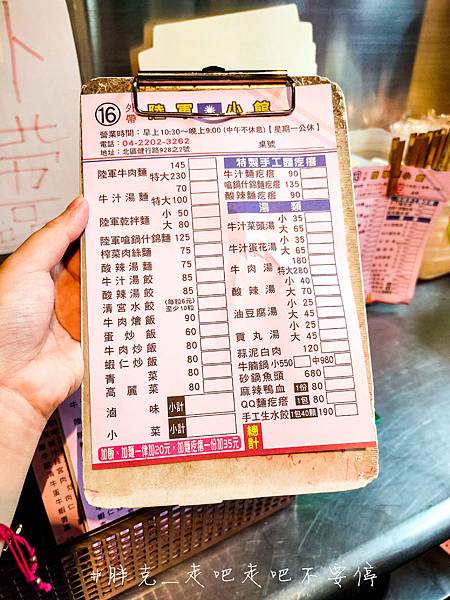 16 外帶 陸軍小館
營業時間：早上10:30～晚上9:00(中午不休息)【星期一公休】
電話：04-2202-3262
地址：北區健行路928之2號 桌號
陸軍牛肉麵 145
特大230
牛汁湯麵 70
特大100
陸軍乾拌麵 小 50
大 80
陸軍嗆鍋什錦麵 125
榨菜肉絲麵 75
酸辣湯麵 75
牛汁湯餃 85
酸辣湯餃 85
清宮水餃 (每粒6元)至少10粒
牛肉燴飯 90
蛋炒飯 60
牛肉炒飯 80
蝦仁炒飯 80
青菜 80
高麗菜 80
滷味 小計
小菜 小計
特製手工麵疙瘩
牛汁麵疙瘩 90
嗆鍋什錦麵疙瘩 135
酸辣麵疙瘩 90
湯類
牛汁菜頭湯 小 35
大 65
牛汁蛋花湯 小 35
大 65
牛肉湯 180
特大280
酸辣湯 小 40
大 70
油豆腐湯 小 25
大 45
貢丸湯 小 25
大 45
蒜泥白肉 120
牛腩鍋 小550 中980
砂鍋魚頭 680
麻辣鴨血 1份 80
QQ麵疙瘩 1包 80
手工生水餃 1包40顆 190
加飯、加麵一律加20元，加麵疙瘩一份加35元
總計
#胖克_走吧走吧不要停